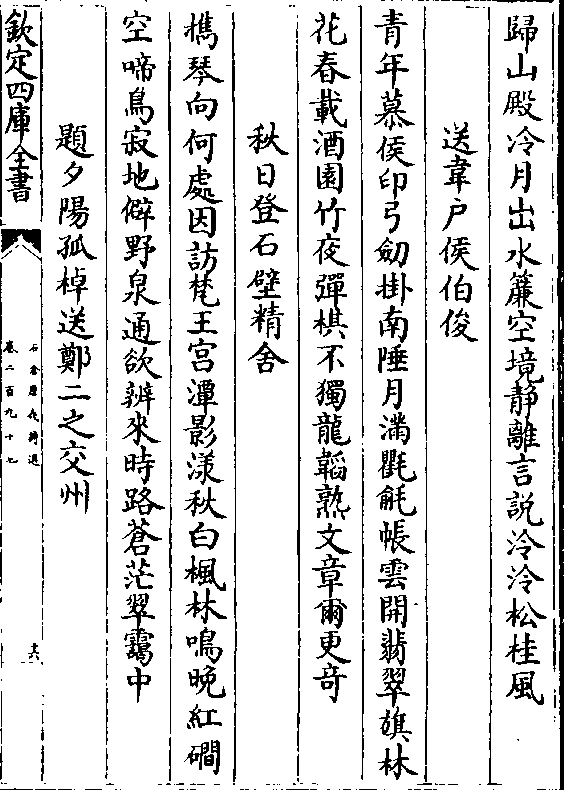 歸山殿冷月出水簾空境静離言説泠泠松桂風
送韋户侯伯俊
青年慕侯印弓劒掛南陲月滿氍毹帳雲開翡翠旗林
花春載酒園竹夜彈棋不獨龍韜熟文章爾更竒
秋日登石壁精舍
擕琴向何處因訪梵王宫潭影漾秋白楓林鳴晚紅磵
空啼鳥寂地僻野泉通欲辨來時路蒼茫翠靄中
題夕陽孤棹送鄭二之交州
欽定四庫全書
石倉歴代詩選
卷二百九十七
十六